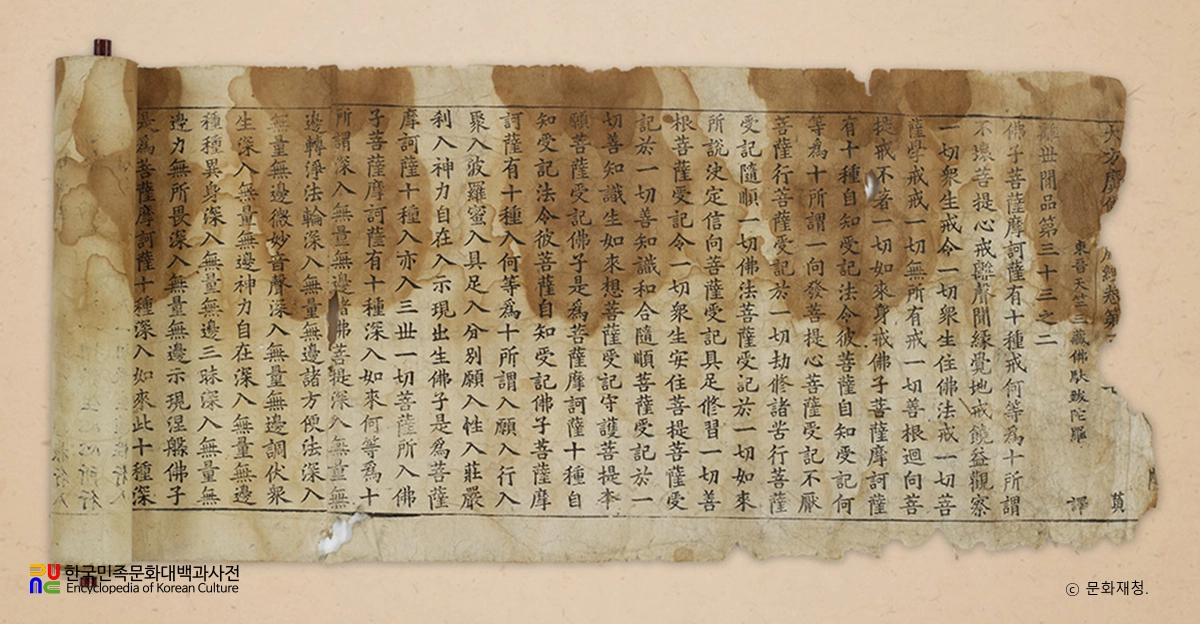 大方廣佛 經卷第
東晉天竺三藏佛馱跋陀羅 譯
離世閒品第三十三之二
佛子菩薩摩訶薩有十種戒何等爲十所謂
不壞菩提心戒離聲聞緣覺地戒饒益觀察
一切衆生戒令一切衆生住佛法戒一切菩
薩學戒戒一切無所有戒一切善根迴向菩
提戒不著一切如來身戒佛子菩薩摩訶薩
有十種自知受記法令彼菩薩自知受記何
等爲十所謂一向發菩提心菩薩受記不厭
菩薩行菩薩受記於一切劫修諸苦行菩薩
受記隨順一切佛法菩薩受記於一切如來
所說決定信向菩薩受記具足修習一切善
根菩薩受記令一切衆生安住菩提菩薩受
記於一切善知識和合隨順菩薩受記於一
切善知識生如來想菩薩受記守護菩提本
願菩薩受記佛子是爲菩薩摩訶薩十種自
知受記法令彼菩薩自知受記佛子菩薩摩
訶薩有十種入何等爲十所謂入願入行入
聚入波羅蜜入具足入分別願入性入莊嚴
利入神力自在入示現出生佛子是爲菩薩
摩訶薩十種入亦入三世一切菩薩所入佛
子菩薩摩訶薩有十種深入如來何等爲十
所謂深入無量無邊諸佛菩提深入無量無
邊轉淨法輪深入無量無邊諸方便法深入
無量無邊微妙音聲深入無量無邊調伏衆
生深入無量無邊神力自在深入無量無邊
種種異身深入無量無邊三昧深入無量無
邊力無所畏深入無量無邊示現涅槃佛子
是爲菩薩摩訶薩十種深入如來此十種深
한국민족문화대백과사전
Encyclopedia of Korean Culture
© 문화재청.